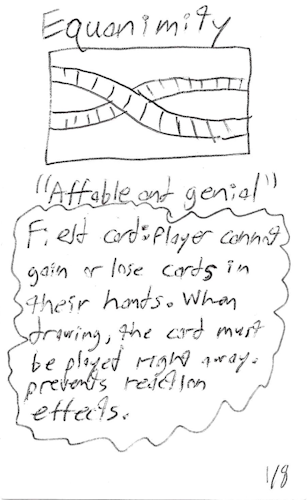 Equanimity
"Affable and genial"
Field card: Player cannot
gain or lose cards in
their hands. When
drawing, the card must
be played right away.
prevents reaction
effects.
1/8